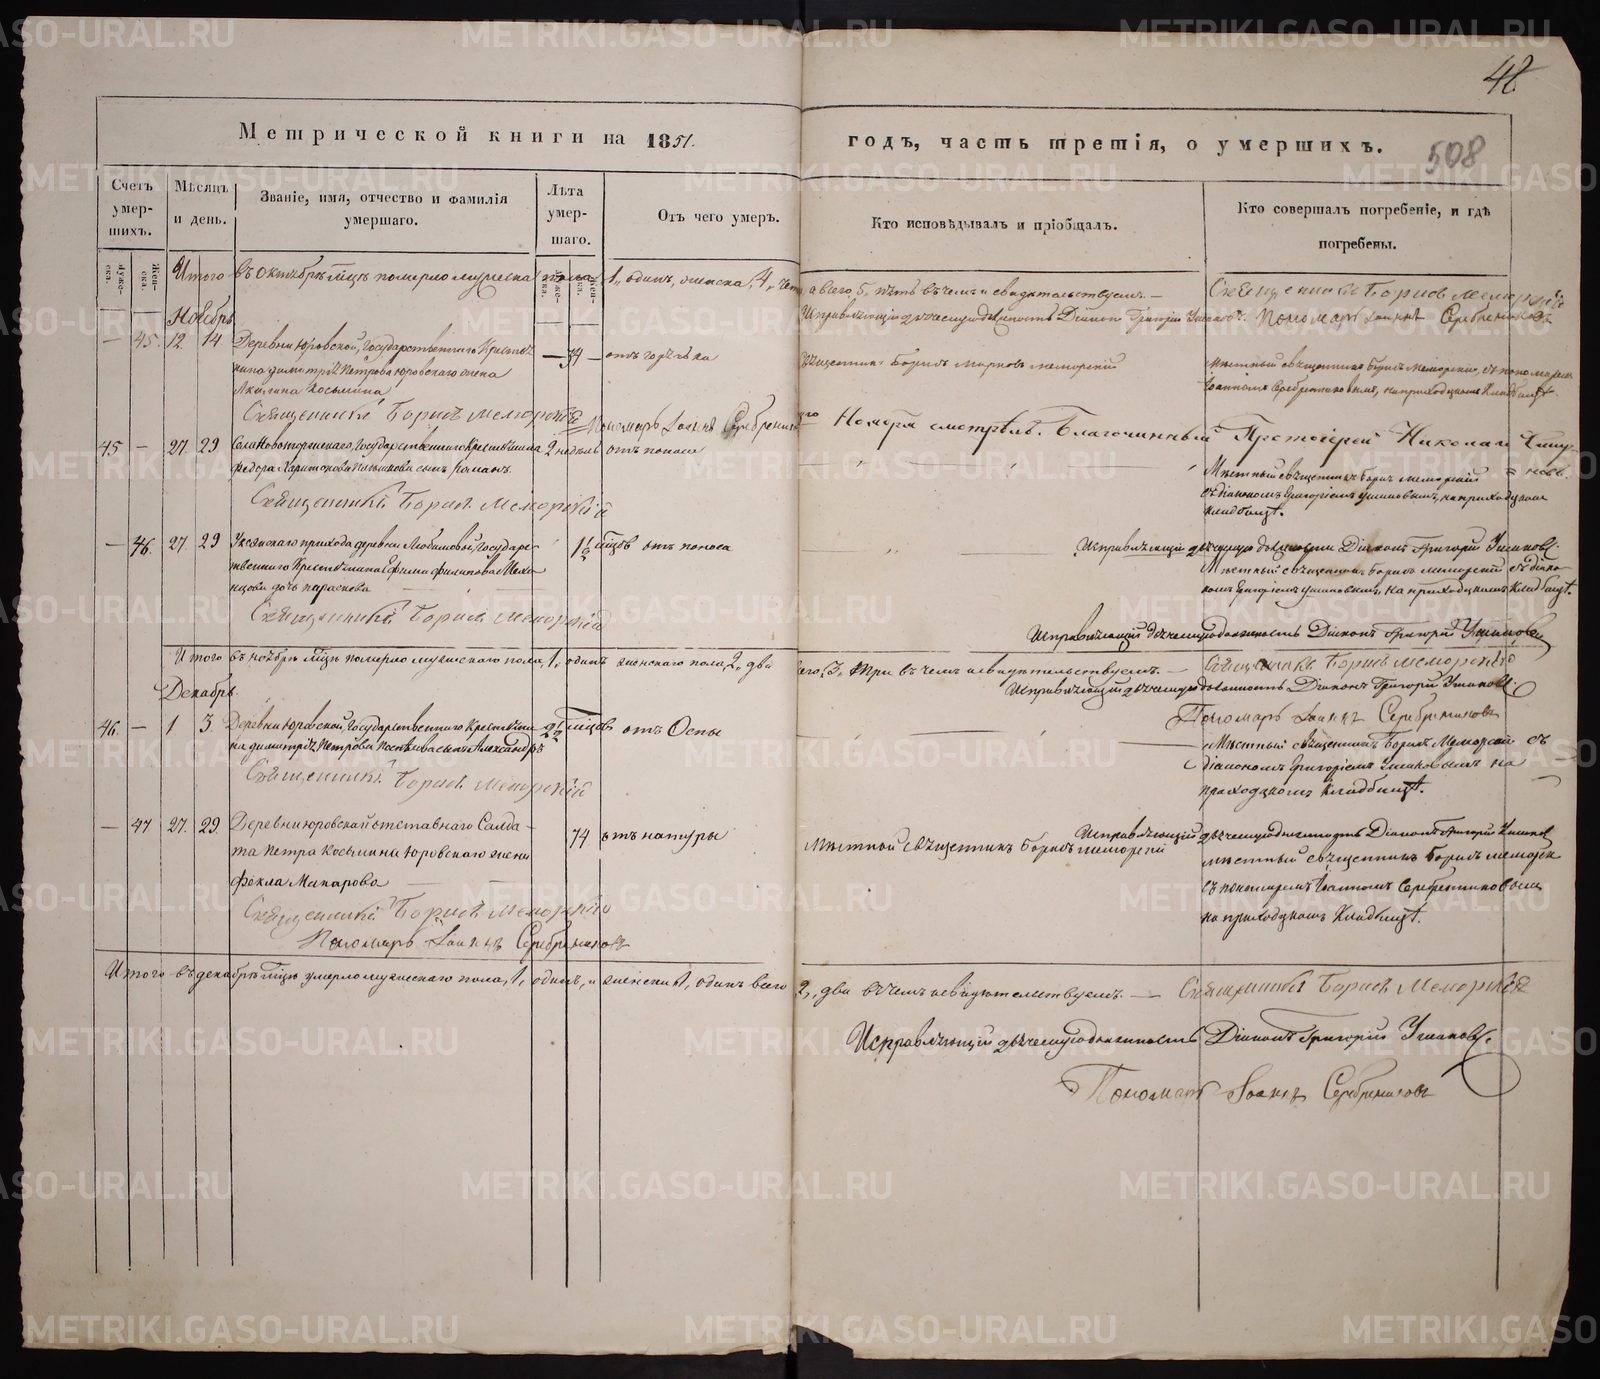 42
508
Метрической книги на 1851. годъ, часть третія, о умершихъ.
Счетъ умер-шихъ.
Мѣсяцъ и день.
Званіе, имя, отчество и фамилія умершаго.
Лѣта умер-шаго.
Отъ чего умеръ.
Кто исповѣдывалъ и пріобщалъ.
Кто совершалъ погребеніе, и гдѣ погребены.
Муже-ска.
Жен-ска.
Муже-ска.
Жен-ска.
Итого въ октябрѣ мцѣ померло мужеска пола 1, одинъ, женска, 4, чет
а всего 5, пять въ чемъ и свидѣтельствуемъ. —
Священникъ Борисъ Меморскій
Исправляющій дьяческую должность Діаконъ Григорій Ушаковъ.
Пономарь Іоаннъ Серебрениковъ
Ноябрь
— 45. 12. 14
Деревни Юровской, Государственнаго Крестья
нина Димитрія Петрова Юровскаго жена
Акилина Косьмина
— 34 —
отъ горячки
Священникъ Борисъ Марковъ Меморскій
Мѣстный священникъ Борисъ Меморскій, съ пономаремъ
Іоанномъ Серебренниковымъ, на приходскомъ Кладбищѣ.
Священникъ Борисъ Меморскій
Пономарь Іоаннъ Серебрениковъ
Номера смотрѣлъ. Благочинный Протоіерей Николай
45 — 27. 29
Села Государственнаго Крестьянина
Федора Харитонова сынъ Романъ.
2 недѣль
отъ поноса
Мѣстный священникъ Борисъ Меморскій
съ діакономъ Григоріемъ Ушаковымъ, на приходскомъ
кладбищѣ.
Священникъ Борисъ Меморскій
Исправляющій дьяческую должность Діаконъ Григорій Ушаковъ.
— 46. 27. 29
прихода деревни Любимовой, Государс-
твеннаго Крестьянина Ефима Филипова
дочь Параскева
1½ мцовъ
отъ поноса
Мѣстный священникъ Борисъ Меморскій съ діако-
номъ Григоріемъ Ушаковымъ, на приходскомъ Кладбищѣ.
Священникъ Борисъ Меморскій
Исправляющій дьяческую должность Діаконъ Григорій Ушаковъ
Итого въ ноябрѣ мцѣ померло мужескаго пола, 1, одинъ женскаго пола, 2, два
всего, 3, три въ чемъ и свидѣтельствуемъ. —
Священникъ Борисъ Меморскій
Исправляющій дьяческую должность Діаконъ Григорій Ушаковъ.
Пономарь Іоаннъ Серебрениковъ
Декабрь.
46. — 1 3.
Деревни Юровской, Государственнаго Крестьяни-
на Димитрія Петрова сынъ Александръ
2½ мцовъ
отъ Оспы
Мѣстный священникъ Борисъ Меморскій съ
діакономъ Григоріемъ Ушаковымъ на
приходскомъ Кладбищѣ.
Священникъ Борисъ Меморскій
Исправляющій дьяческую должность Діаконъ Григорій Ушаковъ
— 47 27. 29.
Деревни Юровской отставнаго Салда-
та Петра Косьмина Юровскаго жена
Фекла Макарова
74
отъ натуры
Мѣстной священникъ Борисъ Меморскій
Мѣстный священникъ Борисъ Меморск
съ пономаремъ Іоанномъ Серебрениковымъ
на приходскомъ Кладбищѣ.
Священникъ Борисъ Меморскій
Пономарь Іоаннъ Серебрениковъ
Итого въ декабрѣ мцѣ умерло мужескаго пола, 1, одинъ, и женска 1, одинъ всего
2, два въ чемъ и свидѣтельствуемъ. —
Священникъ Борисъ Меморскій
Исправляющій дьяческую должность Діаконъ Григорій Ушаковъ.
Пономарь Іоаннъ Серебрениковъ
METRIKI.GASO-URAL.RU